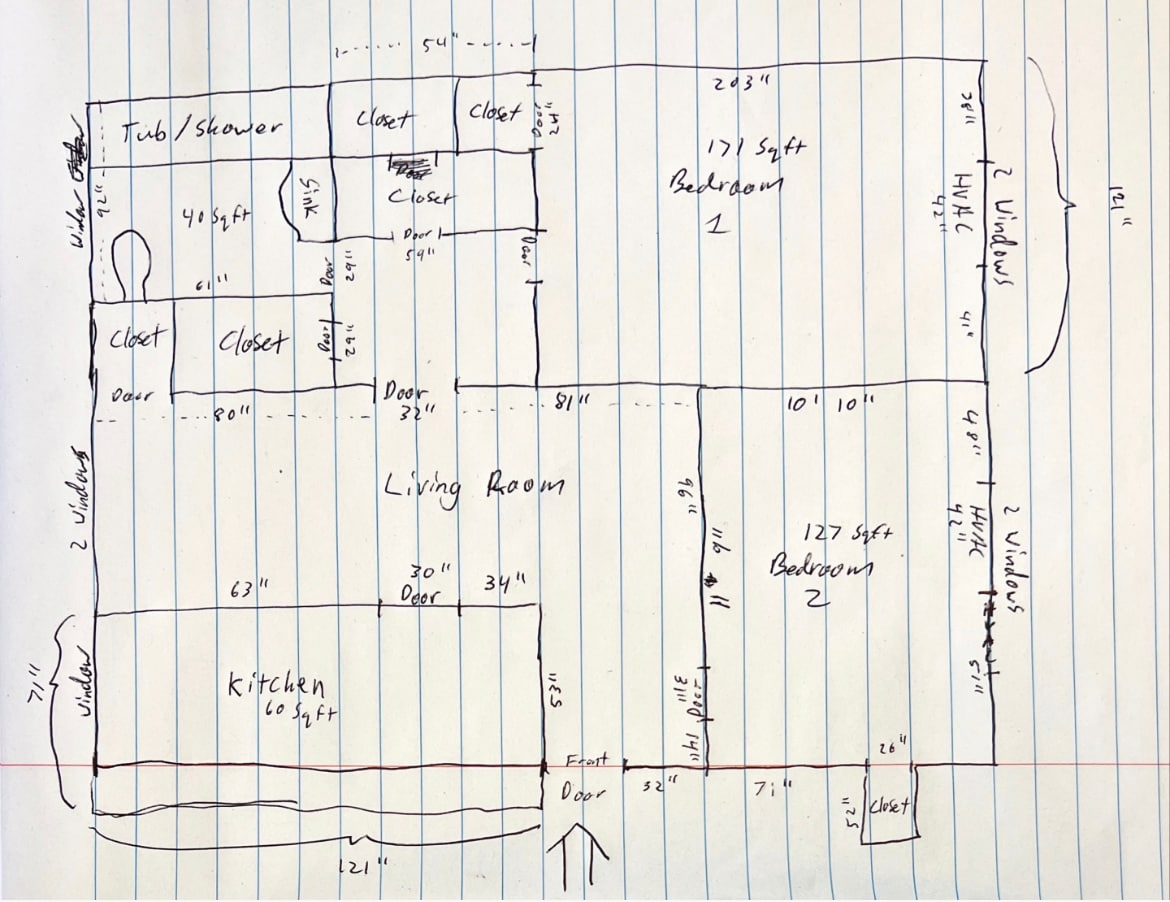 54"
203"
Tub/Shower
Closet
Closet
Door
24"
28"
Window
92"
40 Sqft
Sink
Closet
171 Sqft
Bedroom
1
HVAC
42"
2 Windows
121"
Door
59"
Door
61"
Door
29"
41"
Closet
Closet
Door
29"
Door
80"
Door
32"
81"
10' 10"
48"
2 Windows
Living Room
96"
9'
11"
127 Sqft
Bedroom
2
HVAC
42"
2 Windows
63"
30"
Door
34"
71"
Window
Kitchen
60 Sqft
53"
31"
Door
14"
51"
Front
Door
32"
71"
26"
52"
Closet
121"